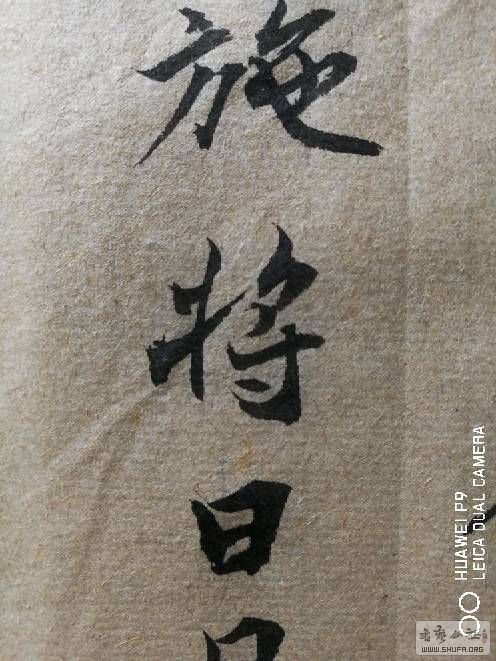 施将日
HUAWEI P9
LEICA DUAL CAMERA
WWW.SHUFA.ORG